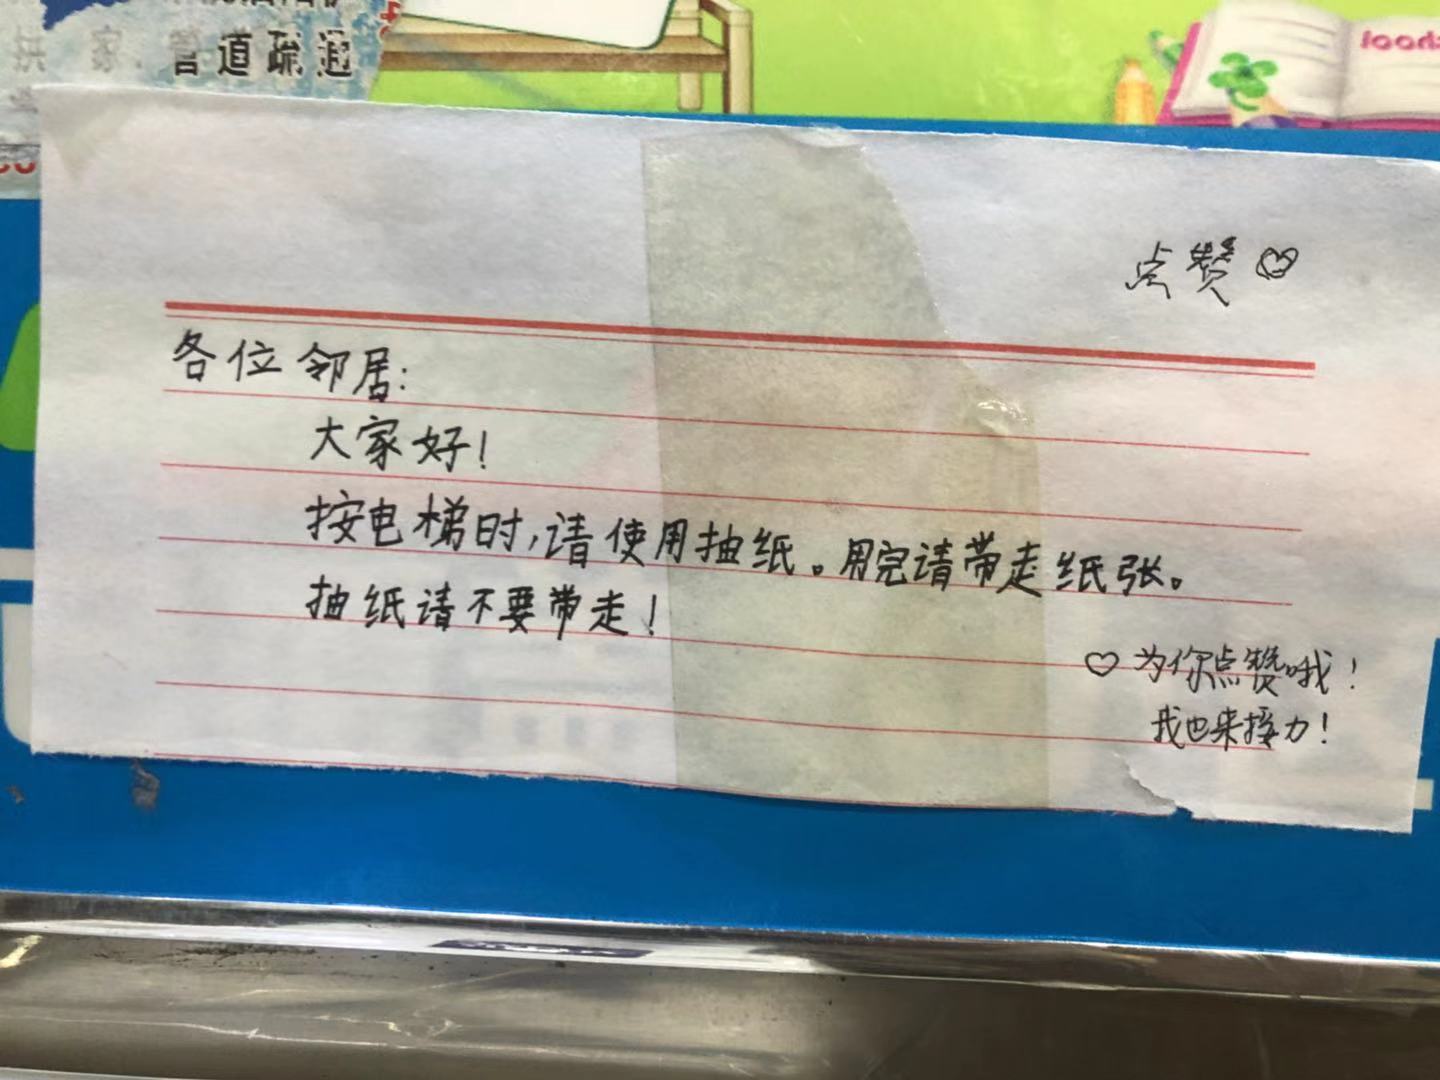 管道疏通
点赞♡
各位邻居:
大家好!
按电梯时,请使用抽纸。用完请带走纸张。
抽纸请不要带走!
♡为你点赞哦!
我也来接力!